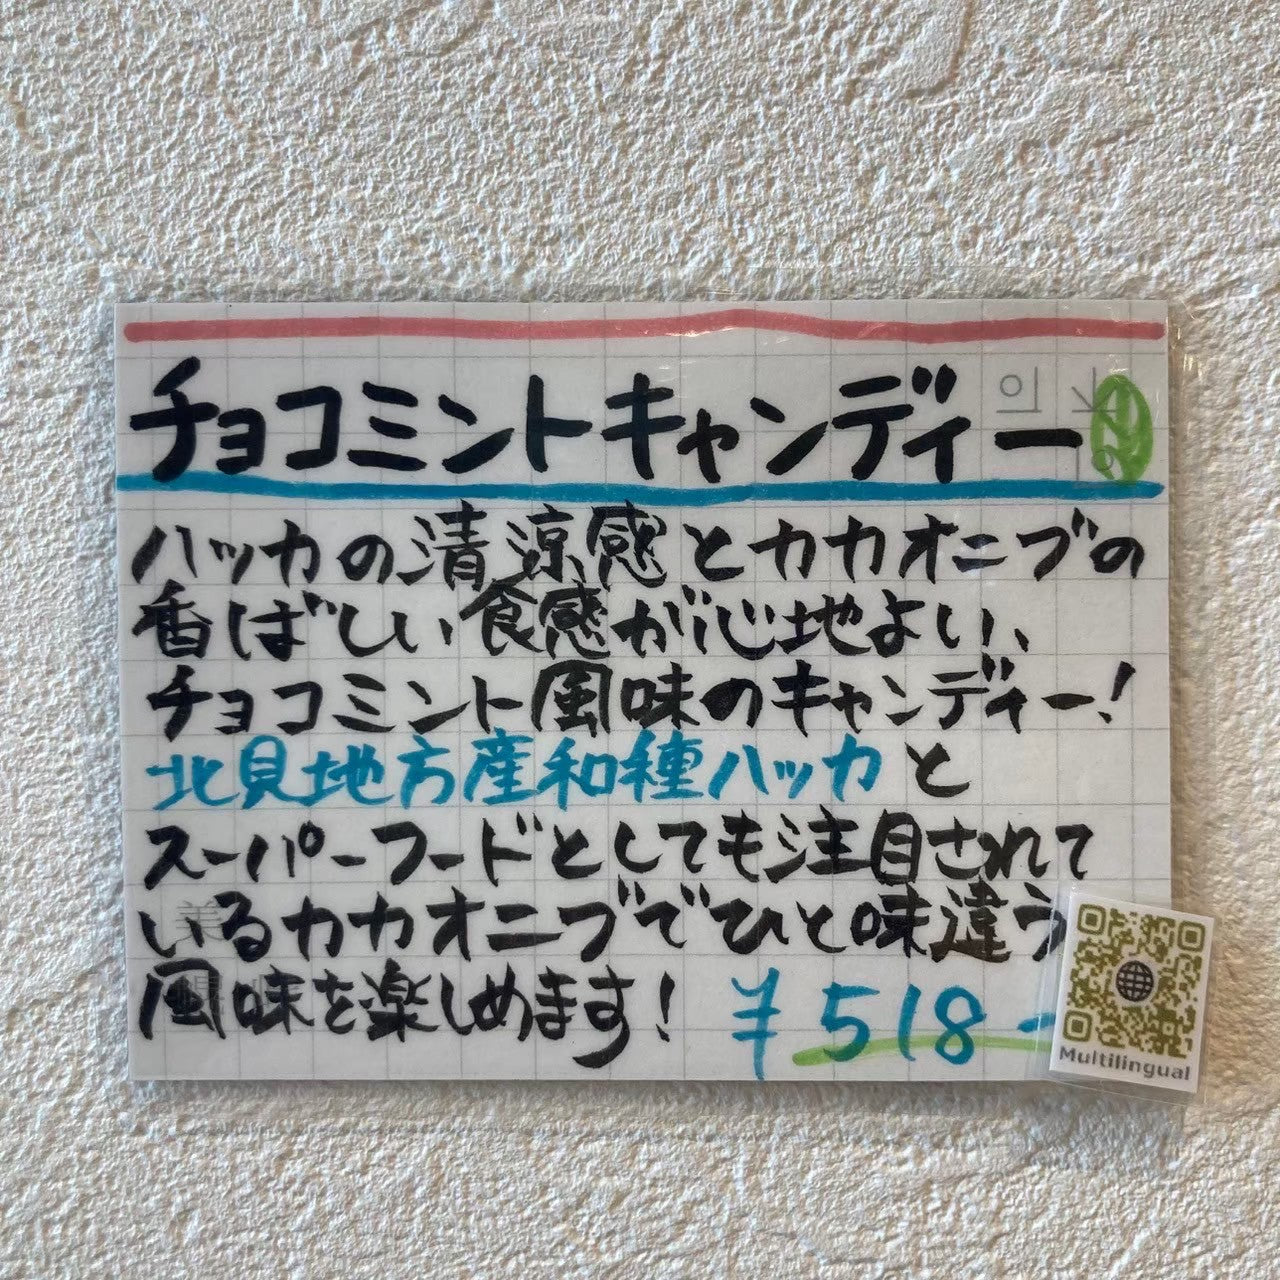 チョコミントキャンディー
ハッカの清涼感とカカオニブの
香ばしい食感が心地よい、
チョコミント風味のキャンディー!
北見地方産和種ハッカと
スーパーフードとしても注目されて
いるカカオニブでひと味違う
風味を楽しめます!
¥518-
Multilingual